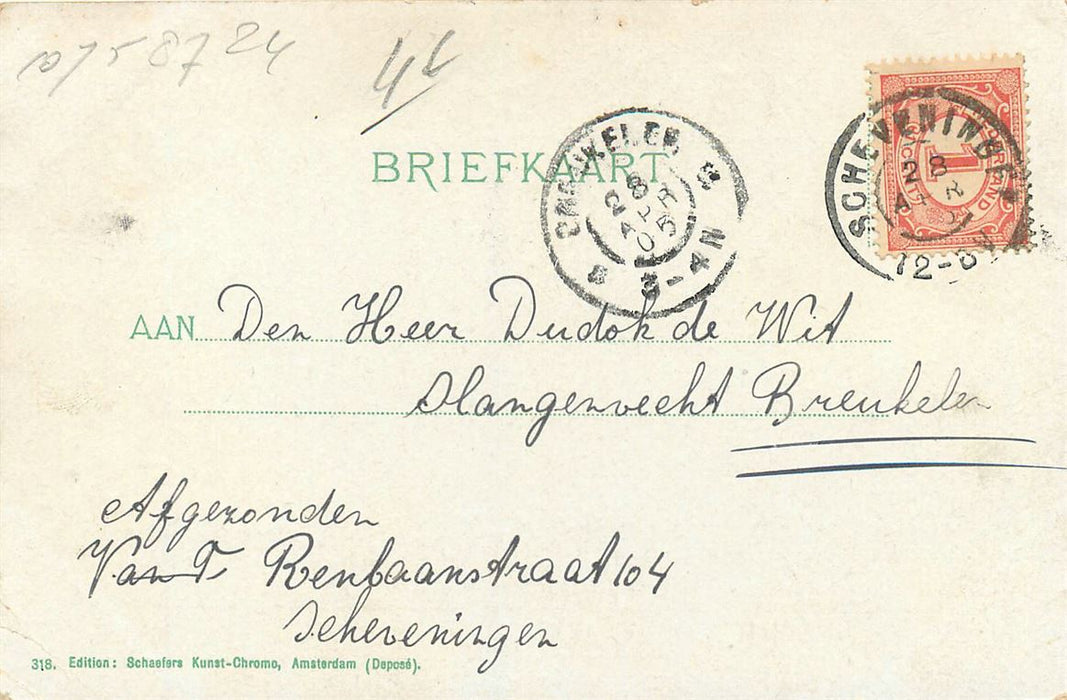 58724
BRIEFKAART
BREUKELEN
28
APR
05
3-4N
SCHEVENINGE
28
12-
1
AAN Den Heer Dudok de Wit
Slangenvecht Breukelen
Afgezonden
Van T. Renbaanstraat 104
Scheveningen
318. Edition: Schaefers Kunst-Chromo, Amsterdam (Deposé).